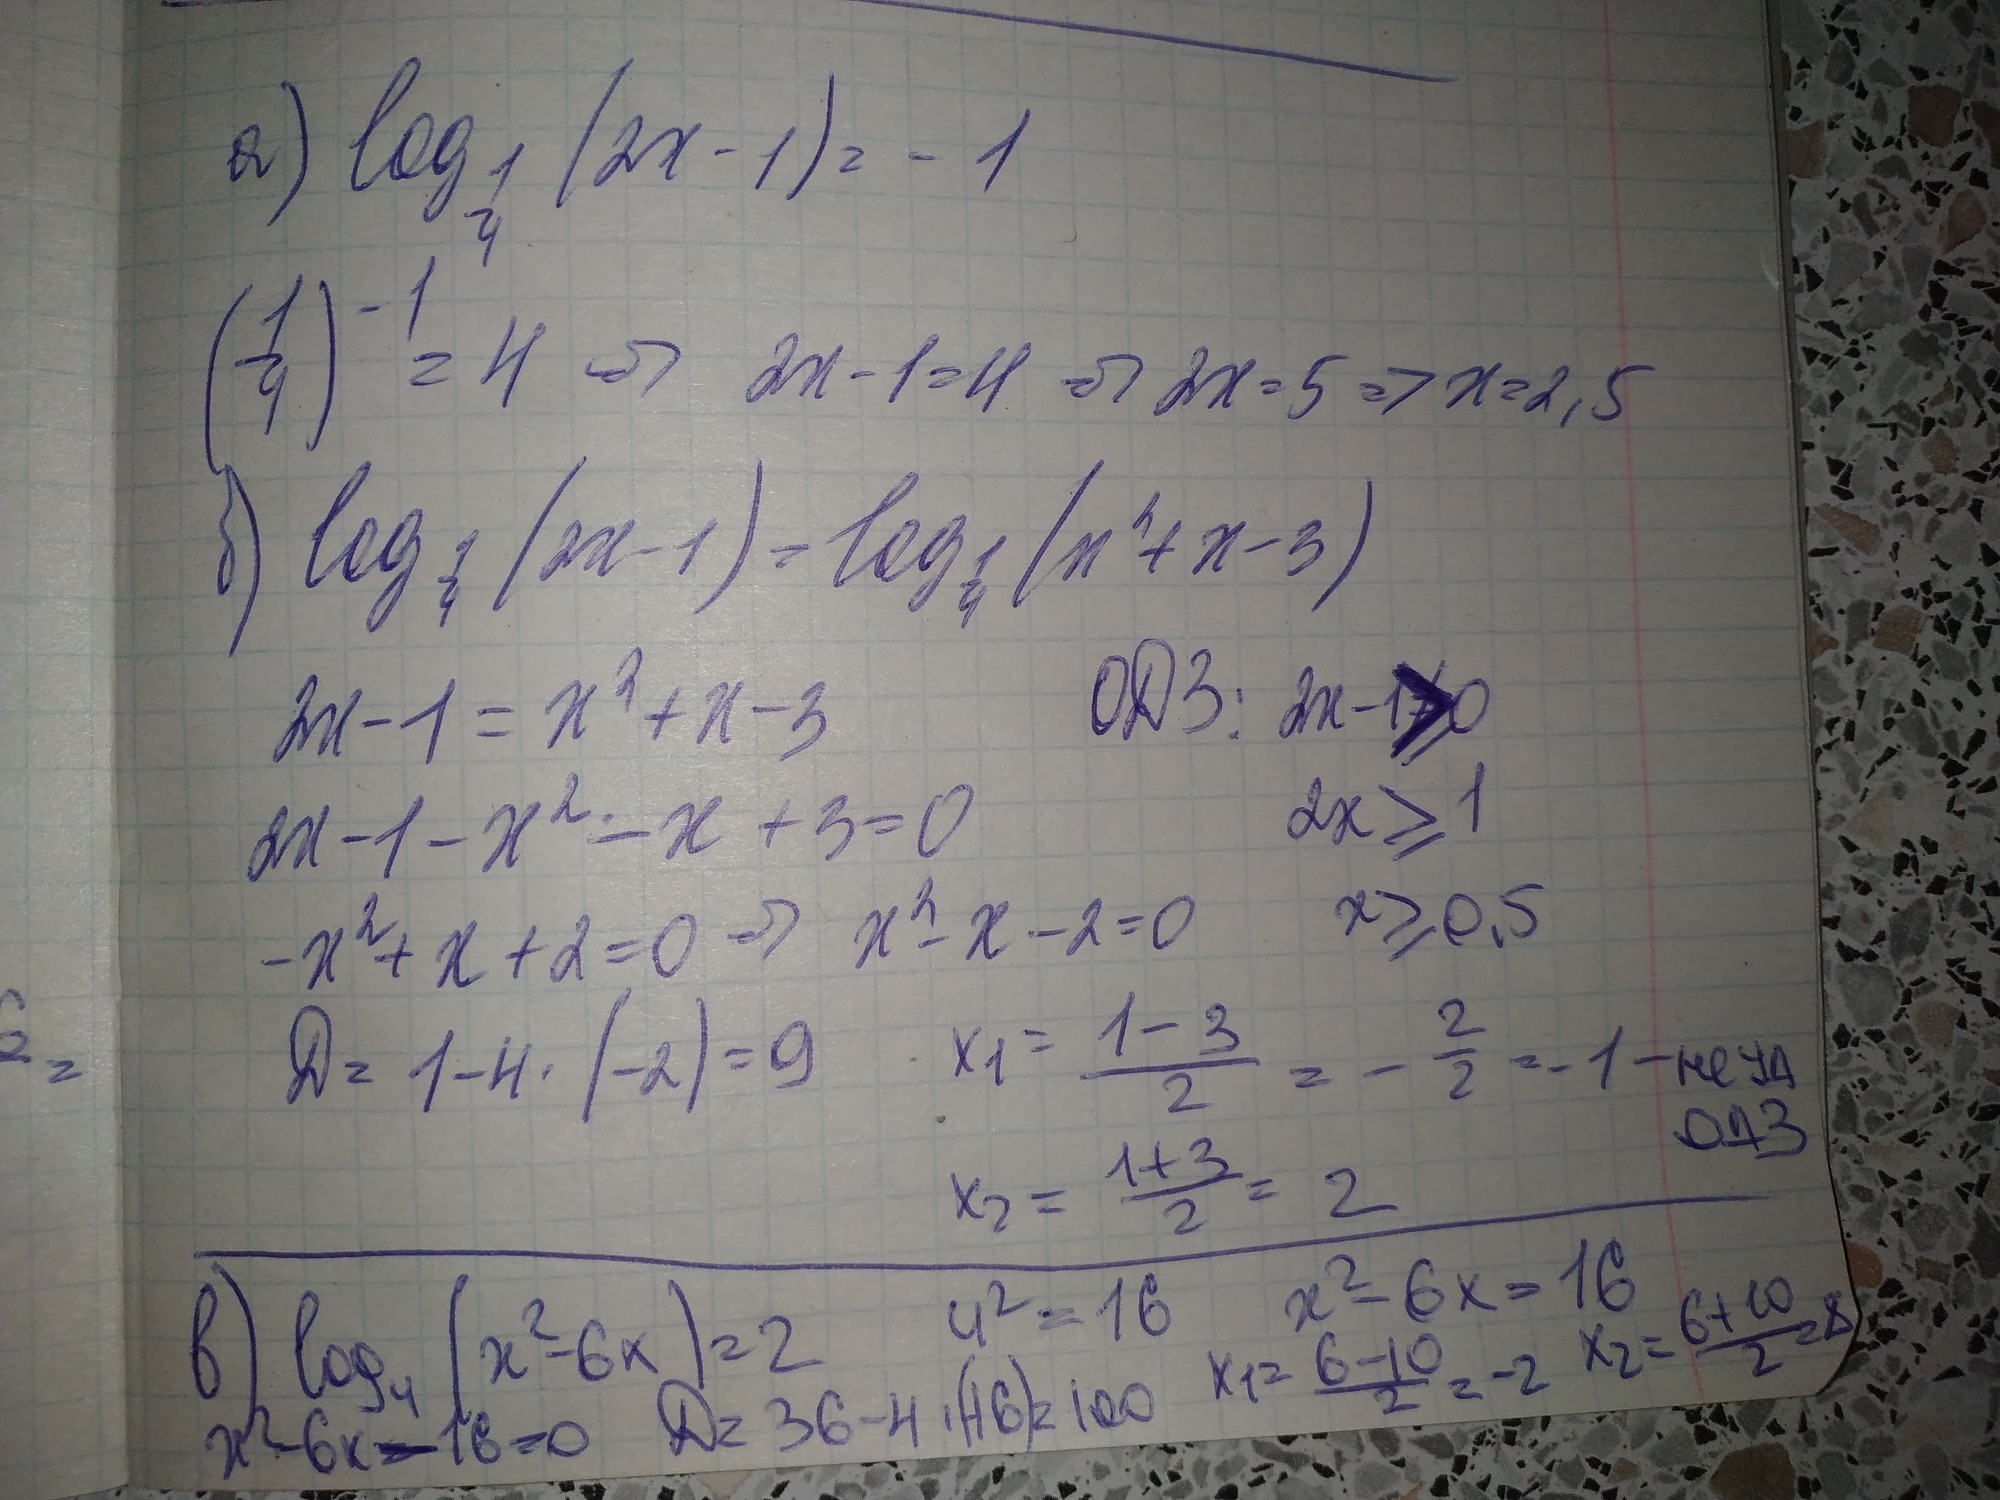 а) log 1/4 (2x - 1) = - 1
(1/4)^-1 = 4 => 2x - 1 = 4 => 2x = 5 => x = 2,5
б) log 1/4 (2x - 1) = log 1/4 (x² + x - 3)
2x - 1 = x² + x - 3 ОДЗ: 2x - 1 ⩾ 0
2x - 1 - x² - x + 3 = 0 2x ⩾ 1
-x² + x + 2 = 0 => x² - x - 2 = 0 x ⩾ 0,5
2 =
D = 1 - 4 · (-2) = 9 x1 = (1 - 3)/2 = - 2/2 = -1 - не уд
ОДЗ
x2 = (1 + 3)/2 = 2
в) log4 (x² - 6x) = 2 4² = 16 x² - 6x = 16
x² - 6x - 16 = 0 D = 36 - 4 · (-16) = 100 x1 = (6 - 10)/2 = -2 x2 = (6 + 10)/2 = 8